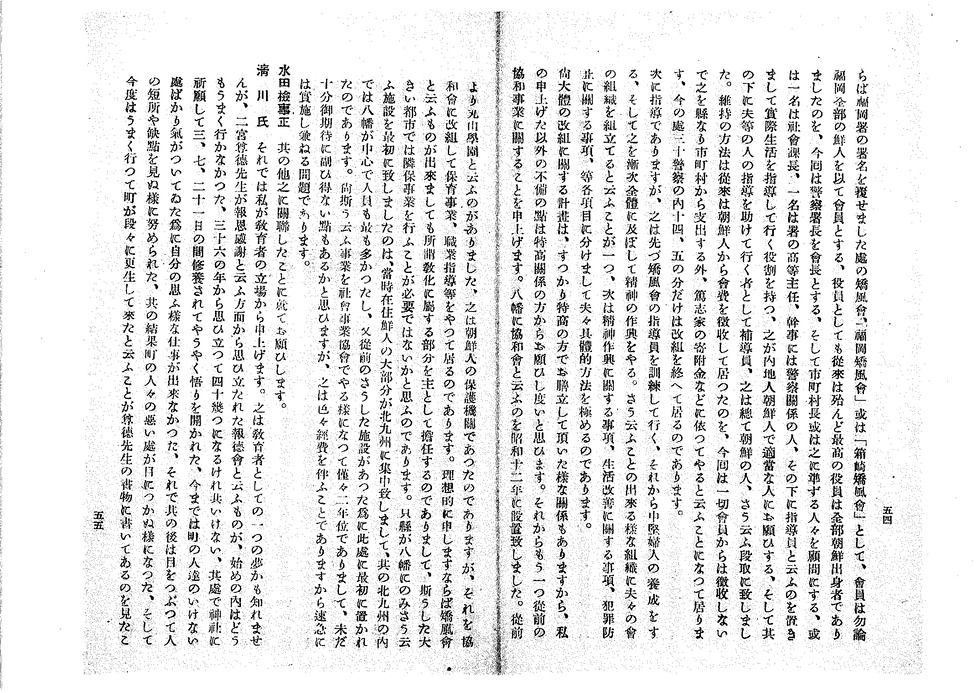 らば福岡署の署名を複せました處の矯風會「福岡矯風會」或は「箱崎矯風會」として、會員は勿論
福岡全部の鮮人を以て會員とする、役員としても從來は殆んど最高の役員は全部朝鮮出身者であり
ましたのを、今回は警察署長を會長とする、そして市町村長或は之に準ずる人々を顧問にする、或
は一名は社會課長、一名は署の高等主任、幹事には警察關係の人、その下に指導員と云ふのを置き
まして實際生活を指導して行く役割を持つ、之が内地人朝鮮人で適當な人にお願ひする、そして其
の下に夫等の人の指導を助けて行く者として補導員、之は總て朝鮮の人、さう云ふ段取に致しまし
た。維持の方法は從來は朝鮮人から會費を徴收して居つたのを、今回は一切會員からは徴收しない
で之を縣なり市町村から支出する外、篤志家の寄附金などに依つてやると云ふことになつて居りま
す、今の處三十警察の内十四、五の分だけは改組を終へて居るのであります。
次に指導でありますが、之は先づ矯風會の指導員を訓練して行く、それから中堅婦人の養成をす
る、そして之を漸次全體に及ぼして精神の作興をやる。さう云ふことの出來る樣な組織に夫々の會
の組織を組立てると云ふことが一つ、次は精神作興に關する事項、生活改善に關する事項、犯罪防
止に關する事項、等各項目に分けまして夫々具體的方法を極めるのであります。
尚大體の改組に關する計畫は、すつかり特高の方でお膳立して頂いた樣な關係もありますから、私
の申上げた以外の不備の點は特高關係の方からお願ひし度いと思ひます。それからもう一つ從前の
協和事業に關することを申上げます。八幡に協和會と云ふのを昭和十二年に設置致しました。從前
五四
より丸山學園と云ふのがありました、之は朝鮮人の保護機關であつたのでありますが、それを協
和會に改組して保育事業、職業指導等をやつて居るのであります。理想的に申しますならば矯風會
と云ふものが出來ましても所謂敎化に屬する部分を主として擔任するのでありまして、斯うした大
きい都市では隣保事業を行ふことが必要ではないかと思ふのであります。只縣が八幡にのみさう云
ふ施設を最初に致しましたのは、當時在住鮮人の大部分が北九州に集中致しまして、其の北九州の内
では八幡が中心で人員も最も多かつたし、又從前のさうした施設があつた爲に此處に最初に置かれ
たのであります。尚斯う云ふ事業を社會事業協會でやる樣になつて僅々二年位でありまして、未だ
十分御期待に副ひ得ない點もあるかと思ひますが、之は色々經費を伴ふことでありますから速急に
は實施し兼ねる問題であります。
水田檢事正　其の他之に關聯したことに就てお願ひします。
清川氏　それでは私が敎育者の立場から申上げます。之は敎育者としての一つの夢かも知れませ
んが、二宮尊德先生が報恩感謝と云ふ方面から思ひ立たれた報德會と云ふものが、始めの内はどう
もうまく行かなかつた、三十六の年から思ひ立つて四十幾つになるけれ共いけない、其處で神社に
祈願して三、七、二十一日の間修養されてやうやく悟りを開かれた、今までは町の人達のいけない
處ばかり氣がついてゐた爲に自分の思ふ樣な仕事が出來なかつた、それで其の後は目をつぶつて人
の短所や缺點を見ぬ樣に努められた、其の結果町の人々の惡い處が目につかぬ樣になつた、そして
今度はうまく行つて町が段々に更生して來たと云ふことが尊德先生の書物に書いてあるのを見たこ
五五